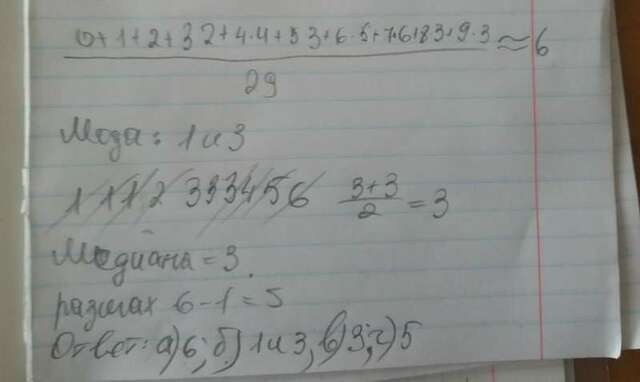 0+1+2+3·2+4·4+5·3+6·5+7·6+8·3+9·3
29
≈6
Мода: 1 и 3
1 1 1 2 3 3 3 4 5 6 3+3/2 = 3
Медиана = 3.
размах 6-1=5
Ответ: а) 6; б) 1 и 3; в) 3; г) 5